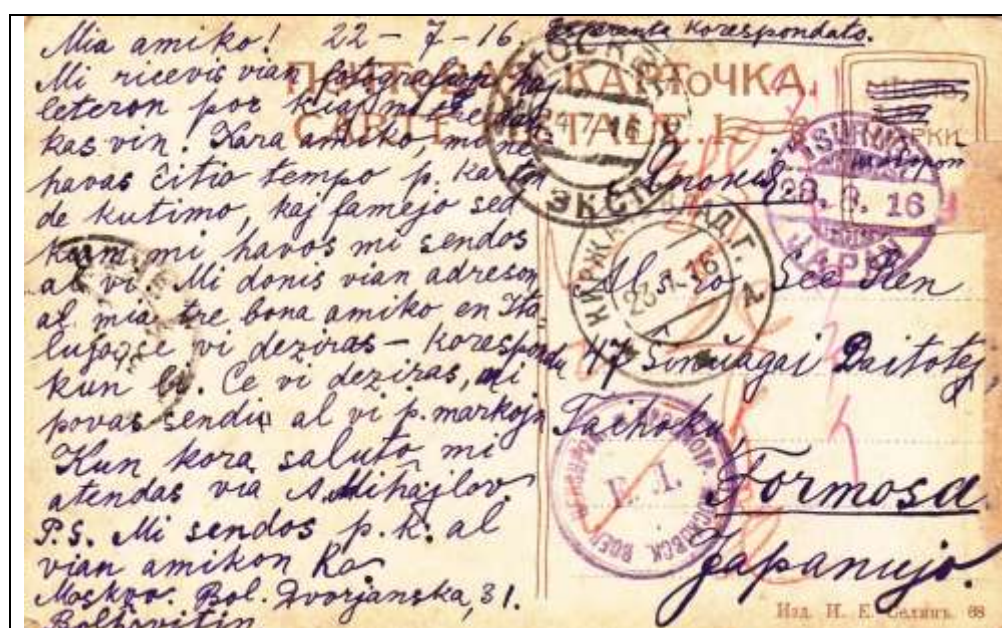 Mia amiko! 22-7-16
Esperanta Korespondato.
Mi ricevis vian fotografion kaj
leteron por kiuj mi tre dan
kas vin. Kara amiko, mi ne
havas tempo p. karton
de kutimo, kaj famejo sed
kiam mi havos mi sendos
al vi. Mi donis vian adreson
al mia tre bona amiko en Ita
lujo, se vi deziras - korespondu
kun li. Ce vi deziras, mi
povas sendi al vi p. markojn
Kun kora saluto mi
atendas via A. Mihajlov.
P.S. Mi sendos p.k. al
vian amikon Ko
Moskvo. Bol. Dvorjanska, 31.
Bolhovitin
ПОЧТОВАЯ КАРТОЧКА.
CARTE POSTALE.
МОСКВА
ЭКСП
МАРКИ
TSURUGA
28. 8. 16
JAPAN
КИРЖАЧ ВЛАД. Г.
23 7 16
Al s-ro See Ren
47 Daitotej
Taihoku
Formosa
Japanujo.
Е. Д.
Изд. И. Е. Селинъ. 68